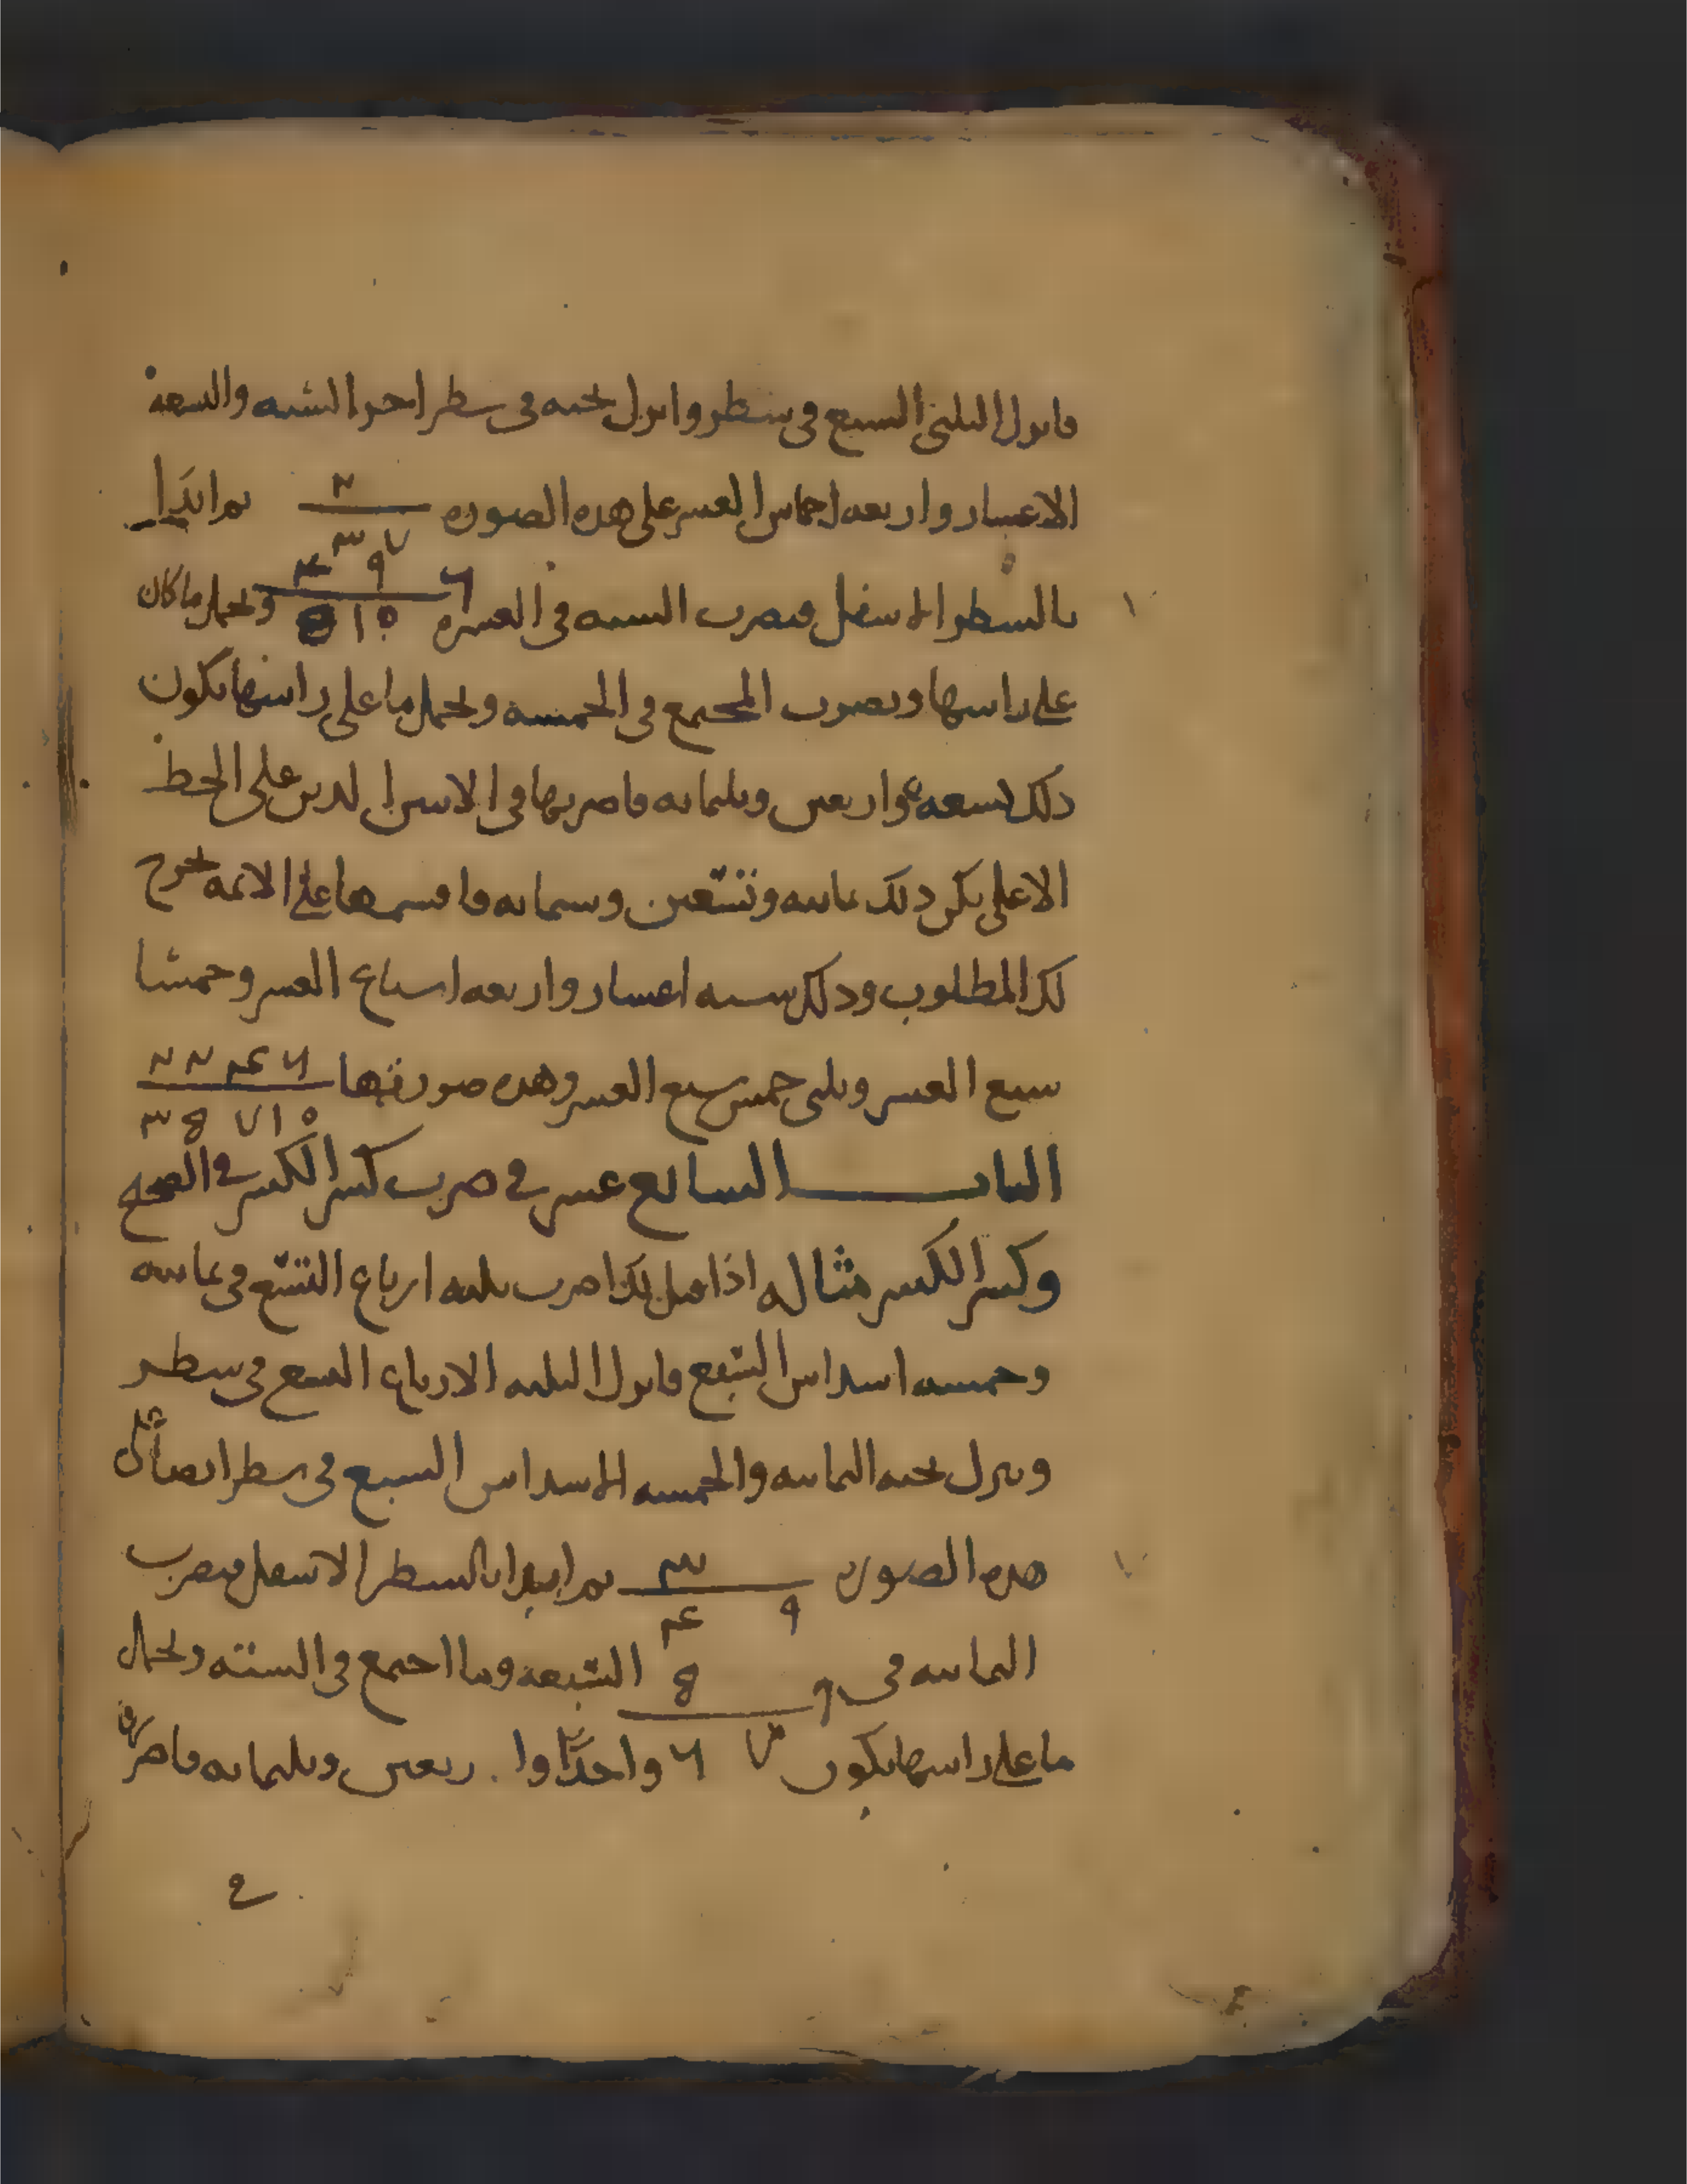 فانزل الثلثي السبع في سطر وانزل تحته في سطر اخر الستة والتسعة
الاعشار واربعة اخماس العشر على هذه الصورة ٢ ثم ابدا
٧ ٣
٤ ٩ ٦
بالسطر الاسفل فتضرب الستة في العشرة ٥ ١٠ وتحمل ما كان
على راسها وتضرب المجتمع في الخمسة وتحمل ما على راسها يكون
ذلك تسعة واربعين وثلثمائة فاضربها في الاثنين الذين على الخط
الاعلى يكن ذلك ثمانية وتسعين وستمائة فاقسمها على الائمة يخرج
لك المطلوب وذلك ستة اعشار واربعة اسباع العشر وخمسا
سبع العشر وثلثي خمس سبع العشر وهذه صورتها ٦ ٤ ٢ ٢
١٠ ٧ ٥ ٣
الباب السابع عشر في ضرب كسر الكسر في الصحيح
وكسر الكسر مثاله اذا قيل لك اضرب ثلثة ارباع التسع في ثمانية
وخمسة اسداس السبع فانزل الثلثة الارباع التسع في سطر
وتنزل تحته الثمانية والخمسة الاسداس السبع في سطر ايضا على
هذه الصورة ٣ ثم ابدا بالسطر الاسفل فتضرب
٩ ٤
الثمانية في ٥ السبعة وما اجتمع في الستة وتحمل
ما على راسها يكون ٧ ٦ واحدا واربعين وثلثمائة فاضربها